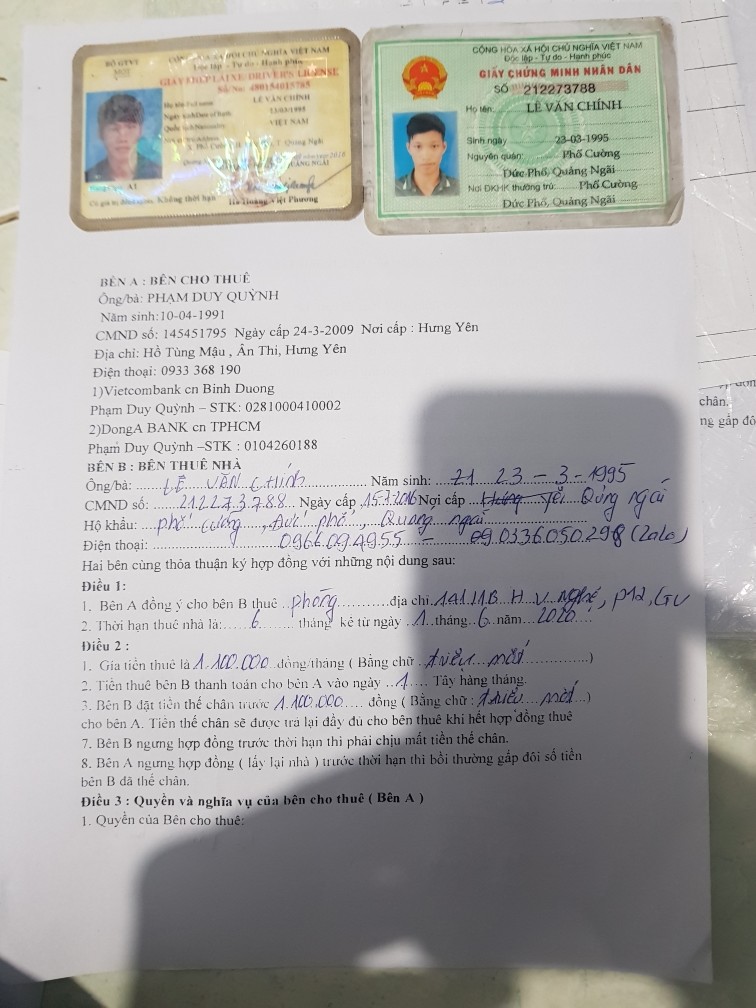 CỘNG HÒA XÃ HỘI CHỦ NGHĨA VIỆT NAM
Độc lập - Tự do - Hạnh phúc
GIẤY PHÉP LÁI XE/DRIVER'S LICENSE
LÊ VĂN CHÍNH
VIỆT NAM
A1
CỘNG HÒA XÃ HỘI CHỦ NGHĨA VIỆT NAM
Độc lập - Tự do - Hạnh phúc
GIẤY CHỨNG MINH NHÂN DÂN
SỐ 212273788
Họ tên: LÊ VĂN CHÍNH
Sinh ngày 23-03-1995
Nguyên quán: Phổ Cường
Đức Phổ, Quảng Ngãi
Nơi ĐKHK thường trú: Phổ Cường
Đức Phổ, Quảng Ngãi
BÊN A : BÊN CHO THUÊ
Ông/bà: PHẠM DUY QUỲNH
Năm sinh:10-04-1991
CMND số: 145451795 Ngày cấp 24-3-2009 Nơi cấp : Hưng Yên
Địa chỉ: Hồ Tùng Mậu , Ân Thi, Hưng Yên
Điện thoại: 0933 368 190
1)Vietcombank cn Binh Duong
Phạm Duy Quỳnh – STK: 0281000410002
2)DongA BANK cn TPHCM
Phạm Duy Quỳnh –STK : 0104260188
BÊN B : BÊN THUÊ NHÀ
Ông/bà: LÊ VĂN Chính Năm sinh: 21 23-3-1995
CMND số: 212273788 Ngày cấp 15-7-2016 Nơi cấp Quảng ngãi
Hộ khẩu: phổ cường, Đức phổ, Quảng ngãi
Điện thoại: 0966094955 - 0336050298 (Zalo)
Hai bên cùng thỏa thuận ký hợp đồng với những nội dung sau:
Điều 1:
1. Bên A đồng ý cho bên B thuê phòng địa chỉ 141.11B H V Nghệ, P12, GV
2. Thời hạn thuê nhà là: 6 tháng kể từ ngày 1 tháng 6 năm 2020
Điều 2 :
1. Gía tiền thuê là 1.100.000 đồng/tháng ( Bằng chữ 1 triệu một )
2. Tiền thuê bên B thanh toán cho bên A vào ngày 1 Tây hàng tháng.
3. Bên B đặt tiền thế chân trước 1.100.000 đồng ( Bằng chữ : 1 triệu một )
cho bên A. Tiền thế chân sẽ được trả lại đầy đủ cho bên thuê khi hết hợp đồng thuê
7. Bên B ngưng hợp đồng trước thời hạn thì phải chịu mất tiền thế chân.
8. Bên A ngưng hợp đồng ( lấy lại nhà ) trước thời hạn thì bồi thường gấp đôi số tiền
bên B đã thế chân.
Điều 3 : Quyền và nghĩa vụ của bên cho thuê ( Bên A )
1. Quyền của Bên cho thuê:
chân.
ng gấp đô